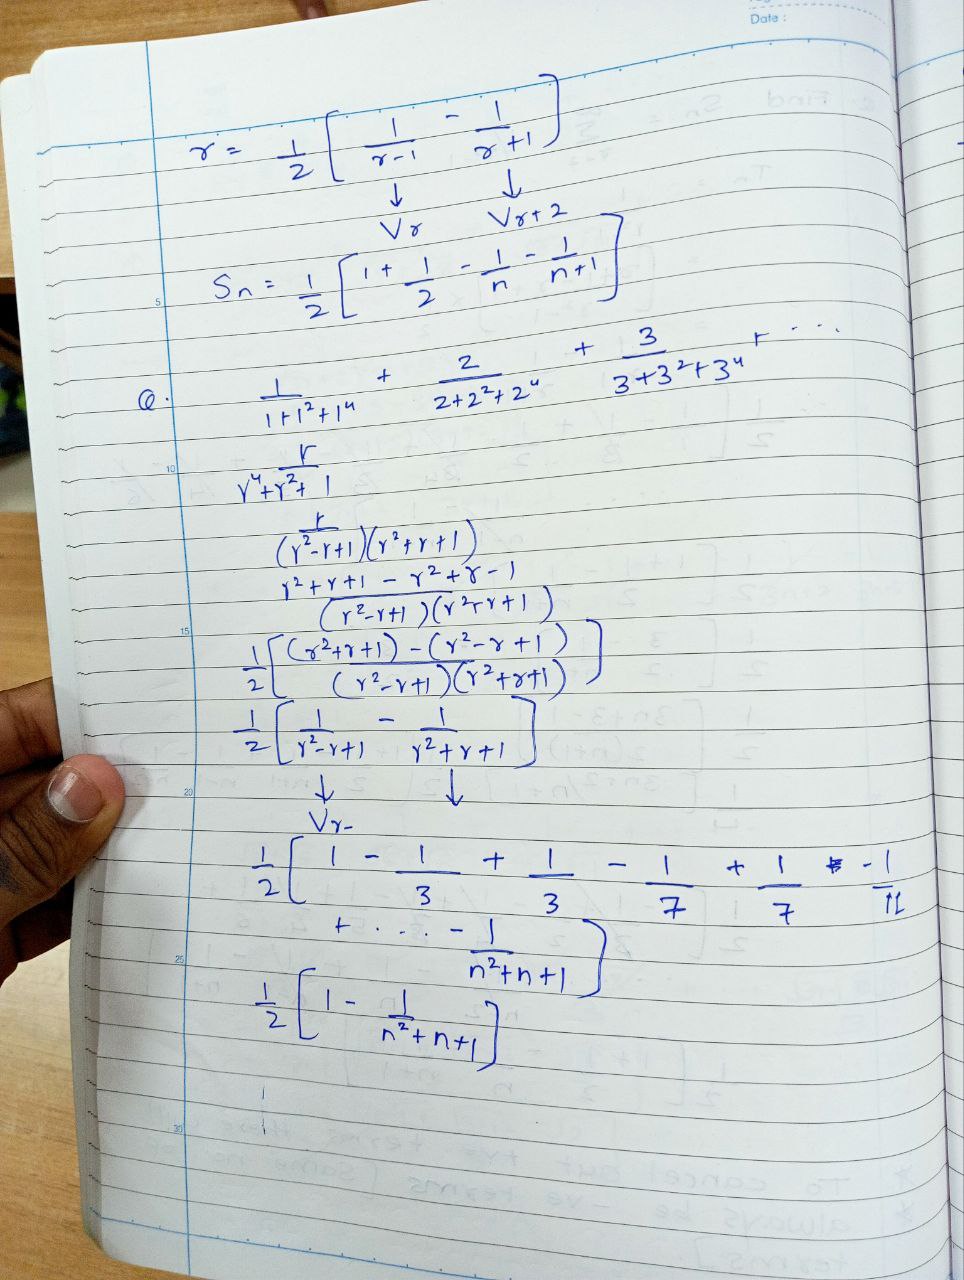 Date :
r = 1/2 [ 1/(r-1) - 1/(r+1) ]
↓ ↓
Vr Vr+2
Sn = 1/2 [ 1 + 1/2 - 1/n - 1/(n+1) ]
5
Q. 1/(1+1²+1⁴) + 2/(2+2²+2⁴) + 3/(3+3²+3⁴) + ...
10
r/(r⁴+r²+1)
r/((r²-r+1)(r²+r+1))
r²+r+1 - r²+r-1/((r²-r+1)(r²+r+1))
15
1/2 [ ((r²+r+1) - (r²-r+1))/((r²-r+1)(r²+r+1)) ]
1/2 [ 1/(r²-r+1) - 1/(r²+r+1) ]
20
↓ ↓
Vr-
1/2 [ 1 - 1/3 + 1/3 - 1/7 + 1/7 - 1/11
+ .... - 1/(n²+n+1) ]
25
1/2 [ 1 - 1/(n²+n+1) ]
30